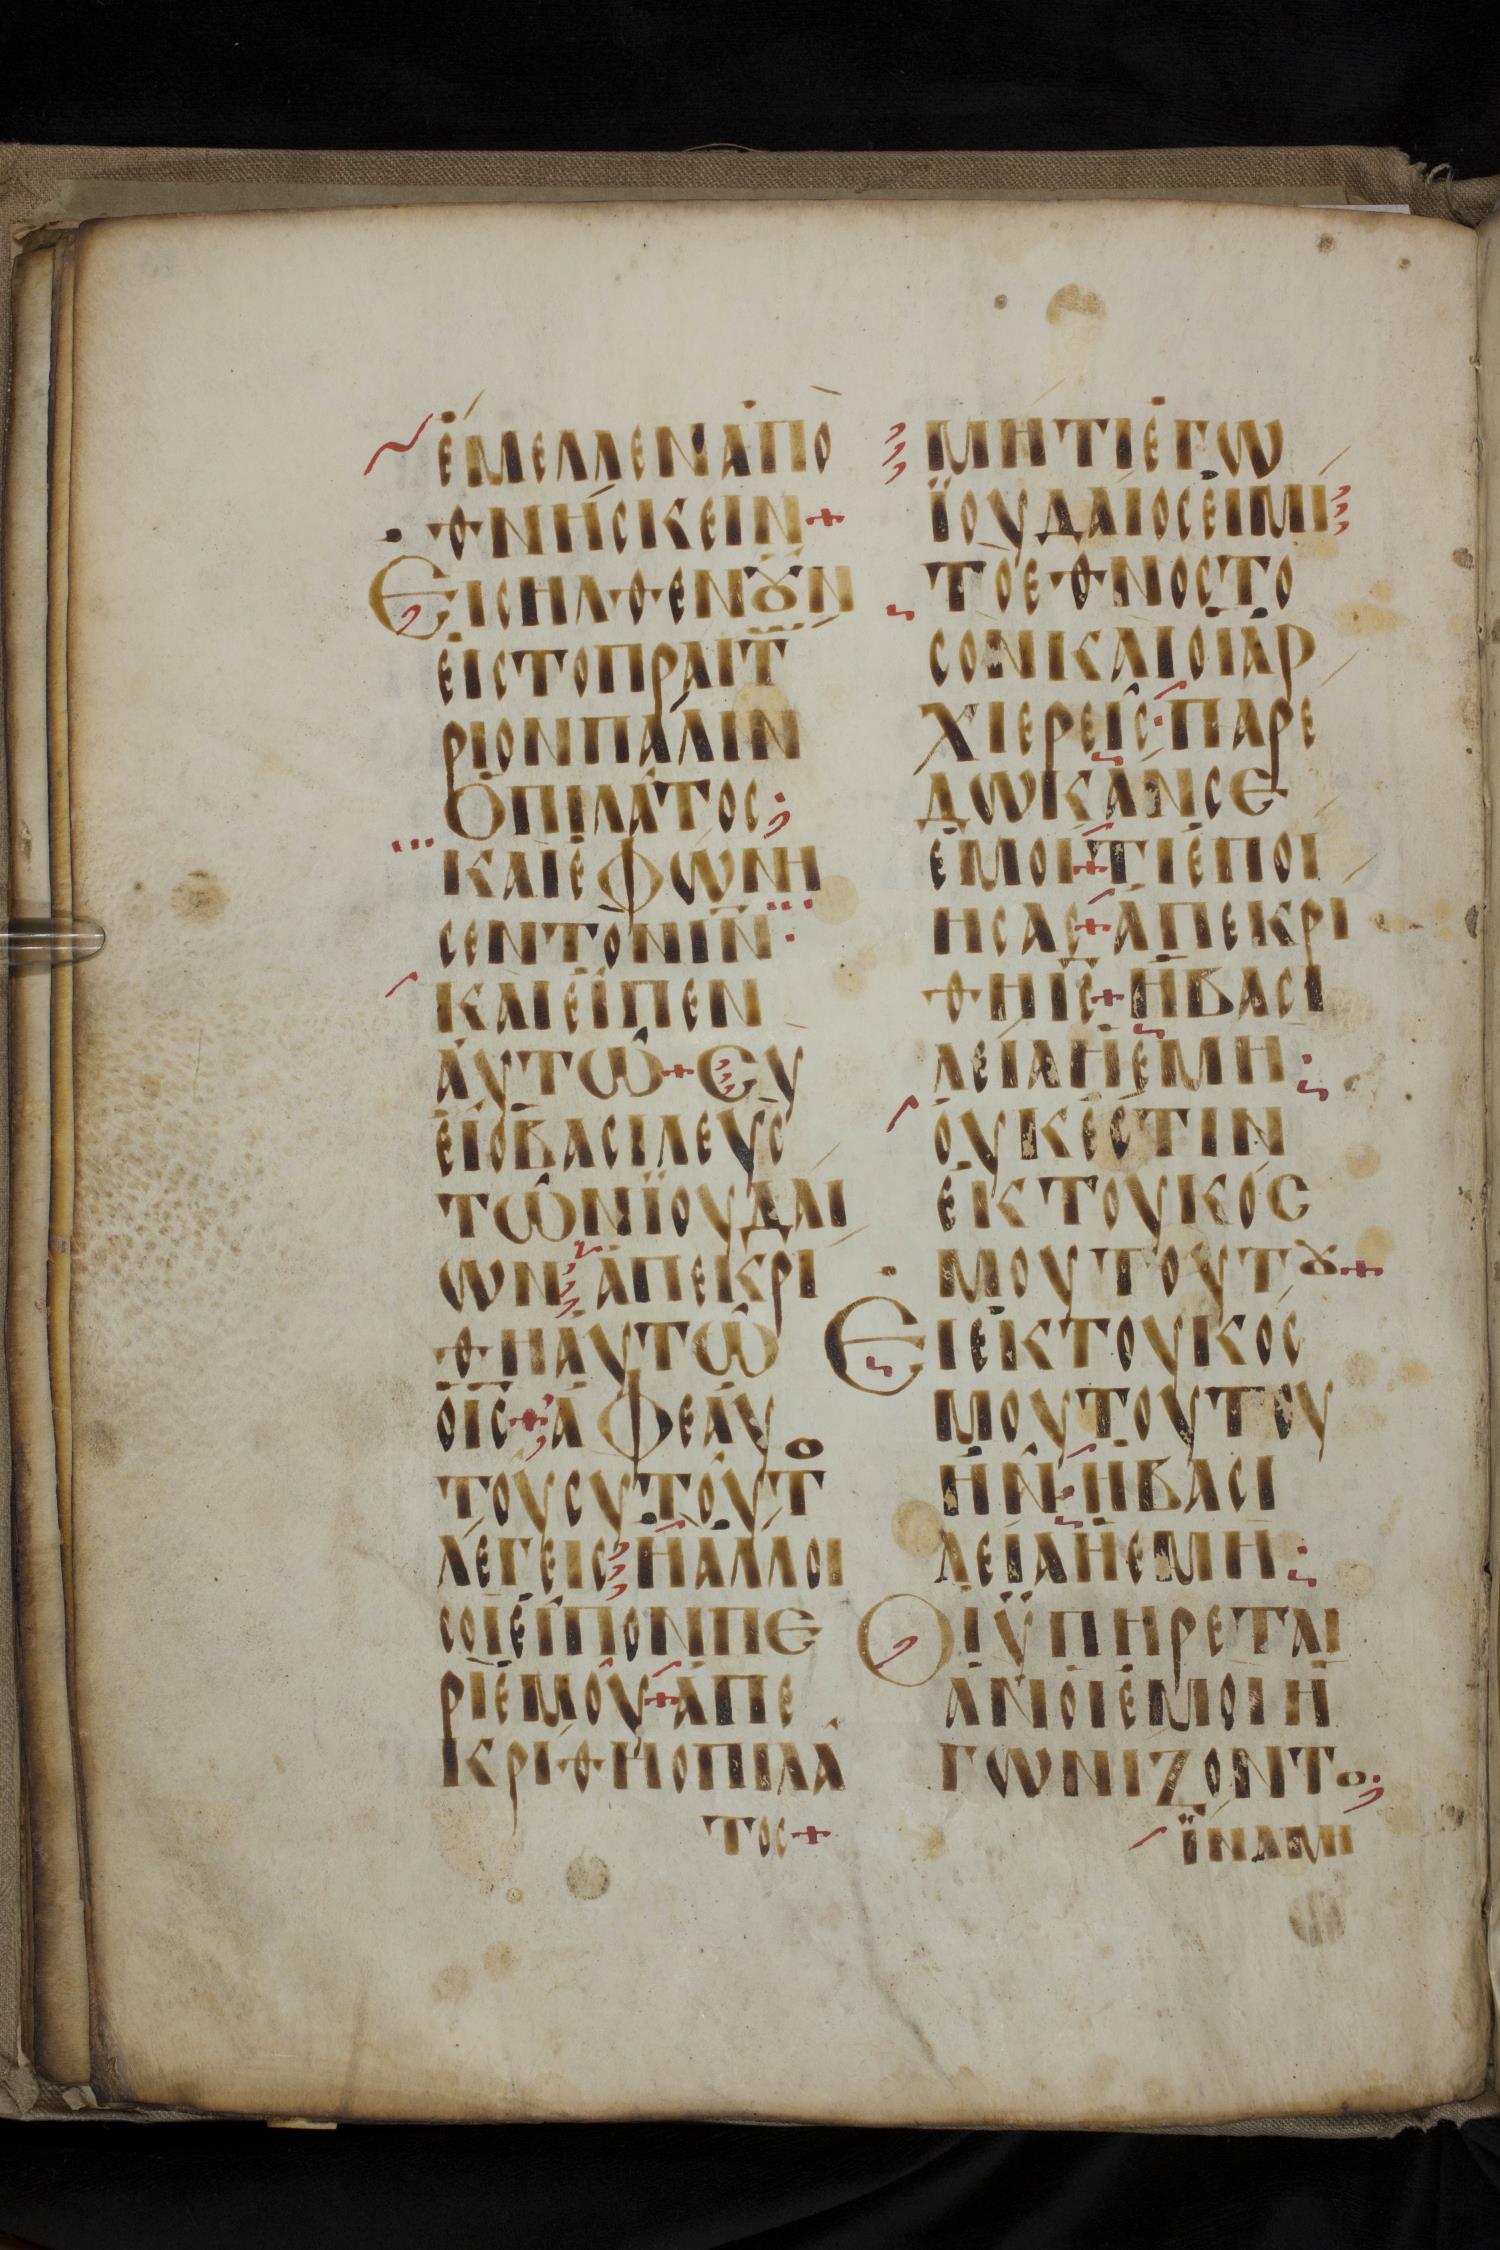 ἔμελλεν ἀπο
θνήσκειν+
Εἰσῆλθεν οὖν
εἰς τὸ πραιτ
ριον πάλιν
ὁ Πιλάτος·
καὶ ἐφώνη
σεν τὸν ι̅ν̅·
καὶ εἶπεν
αὐτῶ+ συ
εἶ ὁ βασιλεὺς
τῶν ϊουδαί
ων ἀπεκρί
θη αὐτῶ
ὁ ι̅ς̅+ ἀφ ἑαυ
τοῦ σὺ τοῦτο
λέγεις ἢ ἄλλοι
σοι εἶπον πε
ρὶ ἐμοῦ+ ἀπε
κρίθη ὁ Πιλά
τος+
μήτι ἐγὼ
ϊουδαῖός εἰμι
τὸ ἔθνος τὸ
σὸν καὶ οἱ ἀρ
χιερεῖς· παρέ
δωκάν σε
ἐμοί+ τί ἐποί
ησας+ ἀπεκρί
θη ι̅ς̅+ ἡ βασι
λεία ἡ ἐμὴ·
οὐκ ἔστιν
ἐκ τοῦ κόσ
μου τούτου+
Εἰ ἐκ τοῦ κόσ
μου τούτου
ἦν· ἡ βασι
λεία ἡ ἐμὴ·
Οἱ ϋπηρέται
ἂν οἱ ἐμοὶ ἠ
γωνίζοντο·
ϊνα μὴ